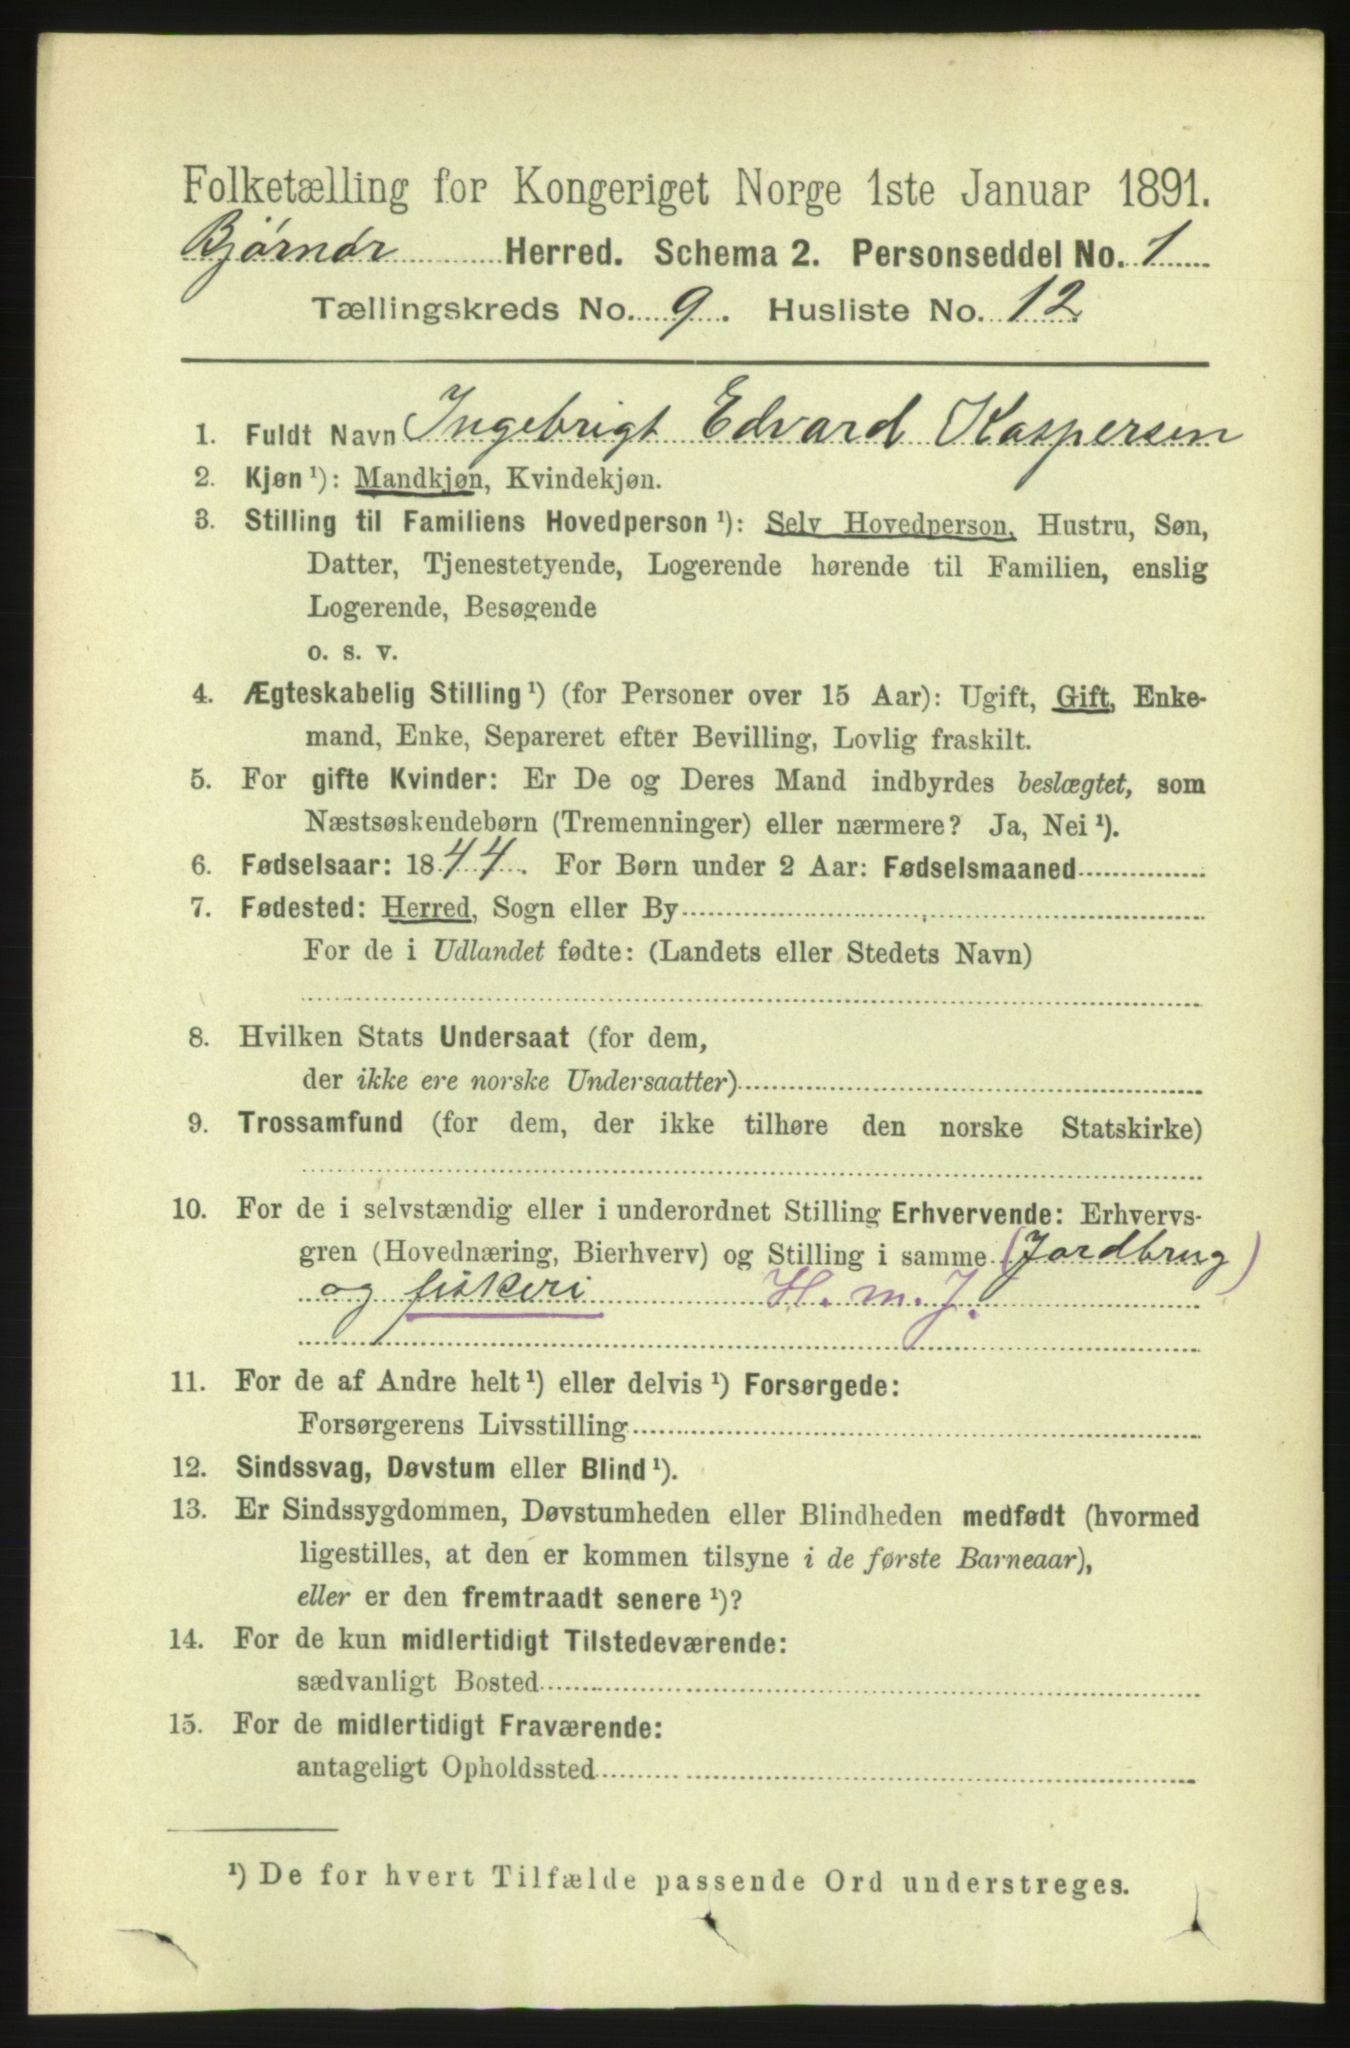 Folketælling for Kongeriget Norge 1ste Januar 1891.
Bjørnør Herred. Schema 2. Personseddel No. 1
Tællingskreds No. 9. Husliste No. 12
1. Fuldt Navn Ingebrigt Edvard Kaspersen
2. Kjøn ¹): Mandkjøn, Kvindekjøn.
3. Stilling til Familiens Hovedperson ¹): Selv Hovedperson, Hustru, Søn,
Datter, Tjenestetyende, Logerende hørende til Familien, enslig
Logerende, Besøgende
o. s. v.
4. Ægteskabelig Stilling ¹) (for Personer over 15 Aar): Ugift, Gift, Enke-
mand, Enke, Separeret efter Bevilling, Lovlig fraskilt.
5. For gifte Kvinder: Er De og Deres Mand indbyrdes beslægtet, som
Næstsøskendebørn (Tremenninger) eller nærmere? Ja, Nei ¹).
6. Fødselsaar: 1844. For Børn under 2 Aar: Fødselsmaaned
7. Fødested: Herred, Sogn eller By
For de i Udlandet fødte: (Landets eller Stedets Navn)
8. Hvilken Stats Undersaat (for dem,
der ikke ere norske Undersaatter)
9. Trossamfund (for dem, der ikke tilhøre den norske Statskirke)
10. For de i selvstændig eller i underordnet Stilling Erhvervende: Erhvervs-
gren (Hovednæring, Bierhverv) og Stilling i samme (Jordbrug)
og fiskeri H. m. J.
11. For de af Andre helt ¹) eller delvis ¹) Forsørgede:
Forsørgerens Livsstilling
12. Sindssvag, Døvstum eller Blind ¹).
13. Er Sindssygdommen, Døvstumheden eller Blindheden medfødt (hvormed
ligestilles, at den er kommen tilsyne i de første Barneaar),
eller er den fremtraadt senere ¹)?
14. For de kun midlertidigt Tilstedeværende:
sædvanligt Bosted
15. For de midlertidigt Fraværende:
antageligt Opholdssted
¹) De for hvert Tilfælde passende Ord understreges.